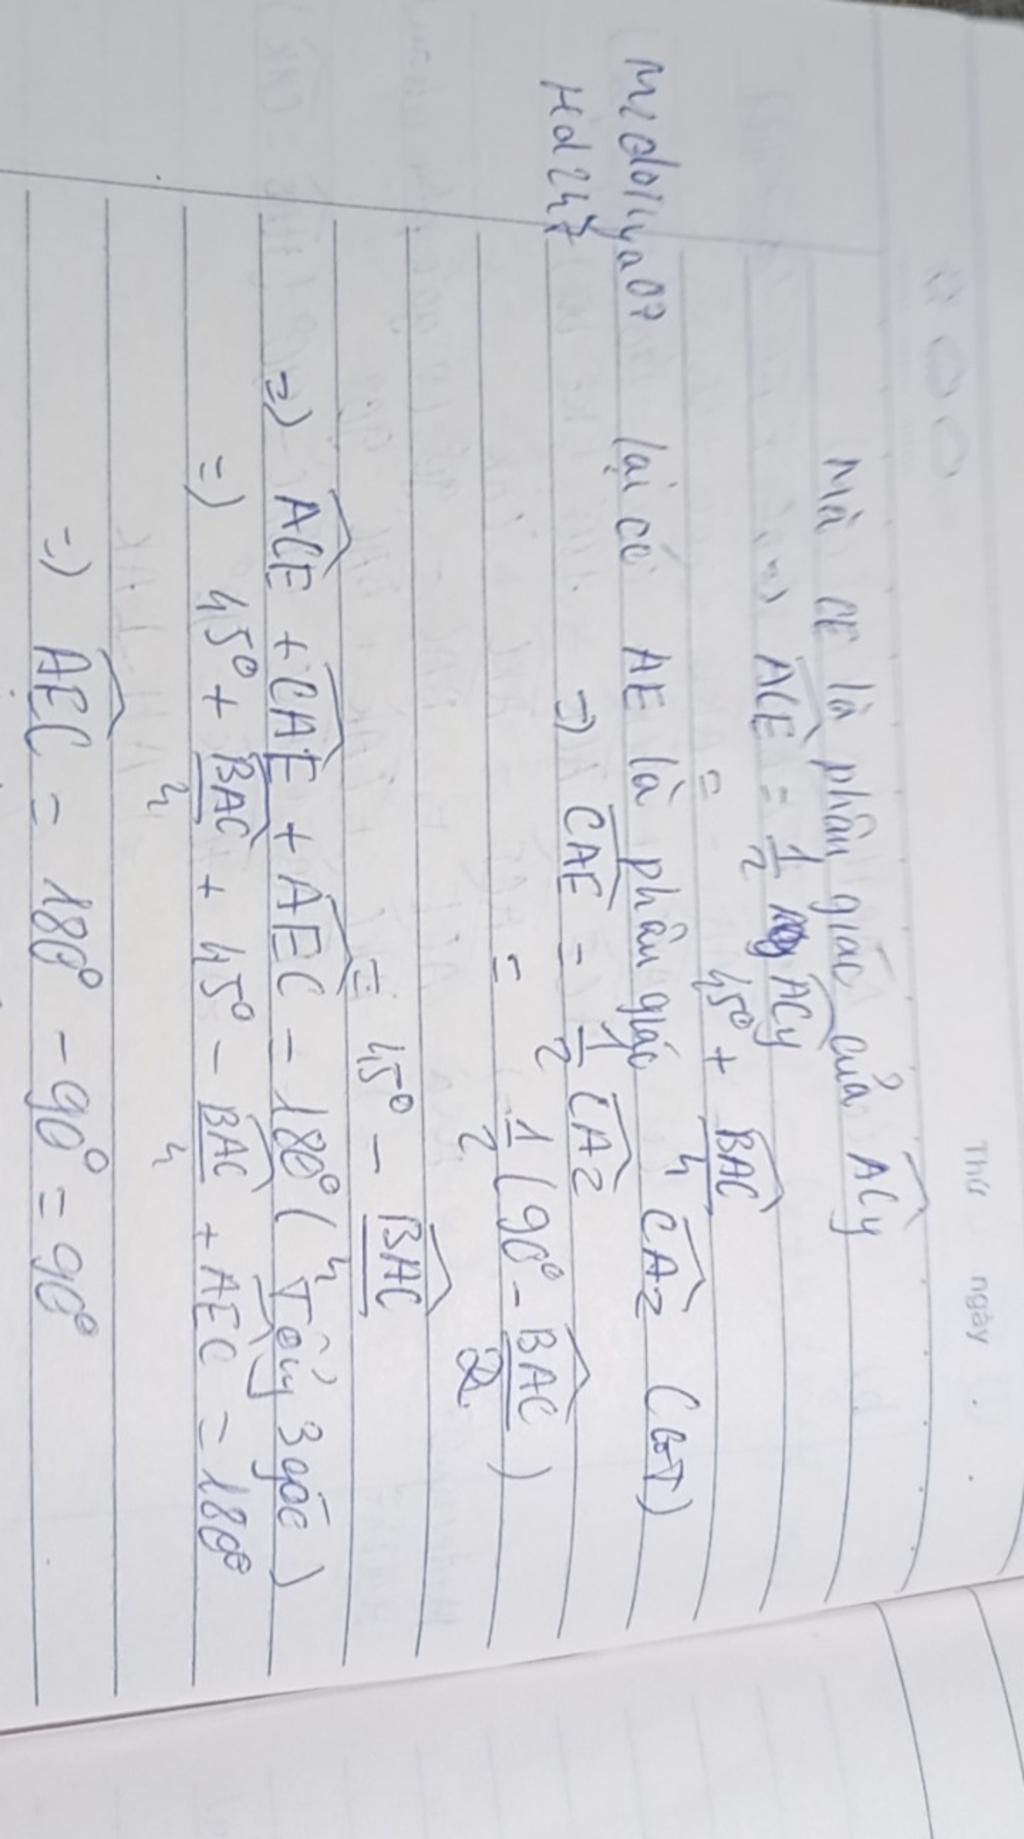 Thứ ngày
Mà CE là phân giác của \widehat{ACy}
=> \widehat{ACE} = \frac{1}{2} \widehat{ACy}
= 45° + \frac{\widehat{BAC}}{4}
Lại có AE là phân giác \widehat{CAz} (GT)
=> \widehat{CAE} = \frac{1}{2} \widehat{CAz}
= \frac{1}{2} (90° - \frac{\widehat{BAC}}{2})
= 45° - \frac{\widehat{BAC}}{4}
=> \widehat{ACE} + \widehat{CAE} + \widehat{AEC} = 180° (Tổng 3 góc)
=> 45° + \frac{\widehat{BAC}}{4} + 45° - \frac{\widehat{BAC}}{4} + \widehat{AEC} = 180°
=> \widehat{AEC} = 180° - 90° = 90°
Hd247